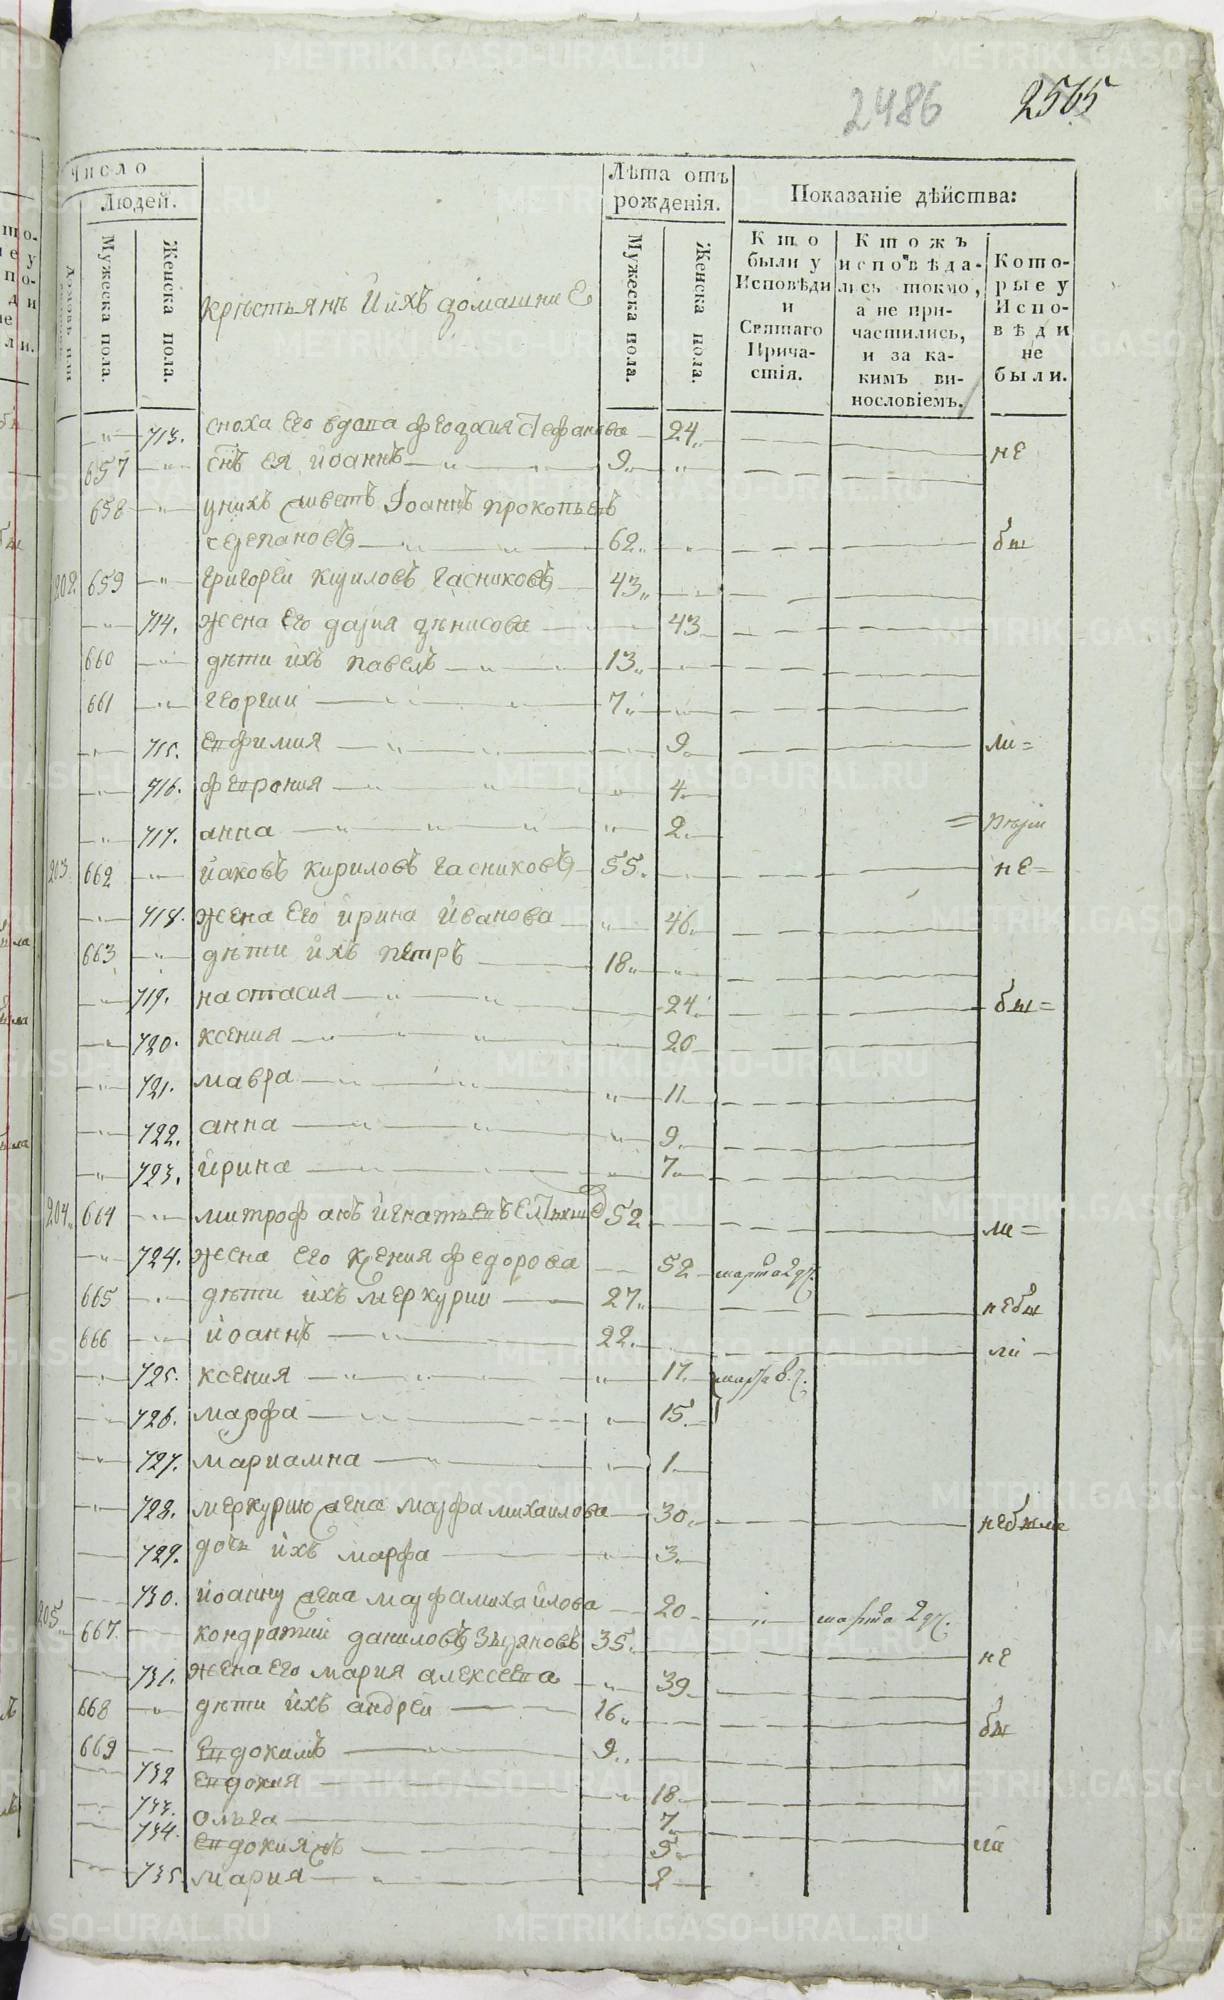 2486 2565
Число
Людей.
Мужеска пола.
Женска пола.
Крѣстьянѣ И ихъ домашниЕ
Лѣта отъ рожденія.
Мужеска пола.
Женска пола.
Показаніе дѣйства:
Кто были у Исповѣди и Святаго Причастія.
Ктожъ исповѣдались токмо, а не причастились, и за какимъ винословіемъ.
Которые у Исповѣди не были.
713. сноха Его вдова феодосия Стефанова 24 не
657 снъ ея иоаннъ 9
658 у нихъ живетъ Іоаннъ прокопьевъ
степановъ 62 бы
202 659 григореи кириловъ часниковъ 43
714. жена Его дария денисова 43
660 дѣти ихъ павелъ 13
661 георгии 7
715. Евфимия 9 ли=
716. феврония 4
717. анна 2 =
203 662 иаковъ кириловъ часниковъ 55 не=
718. жена Его ирина Иванова 46
663 дѣти ихъ петръ 18
719. настасия 24 бы=
720. ксения 20
721. мавра 11
722. анна 9
723. ирина 7
204 664 митрофанъ игнатьевъ 52 ли=
724. жена Его Ксения федорова 52 марта 2 д.
665 дѣти ихъ меркурии 27 небы
666 иоаннъ 22 ли
725. ксения 17 марта 8.
726. марфа 15
727. мариамна 1
728. меркурию жена марфа михаилова 30 небыли
729. дочь ихъ марфа 3
730. иоанну жена марфа михаилова 20 марта 2
205 667 кондратии даниловъ 35
731. жена Его мария алексеева 39 не
668 дѣти ихъ андреи 16 бы
669 Евдокимъ 9
732 Евдокия 18
733. олга 7
734. Евдокия 5 ли
735 мария 2